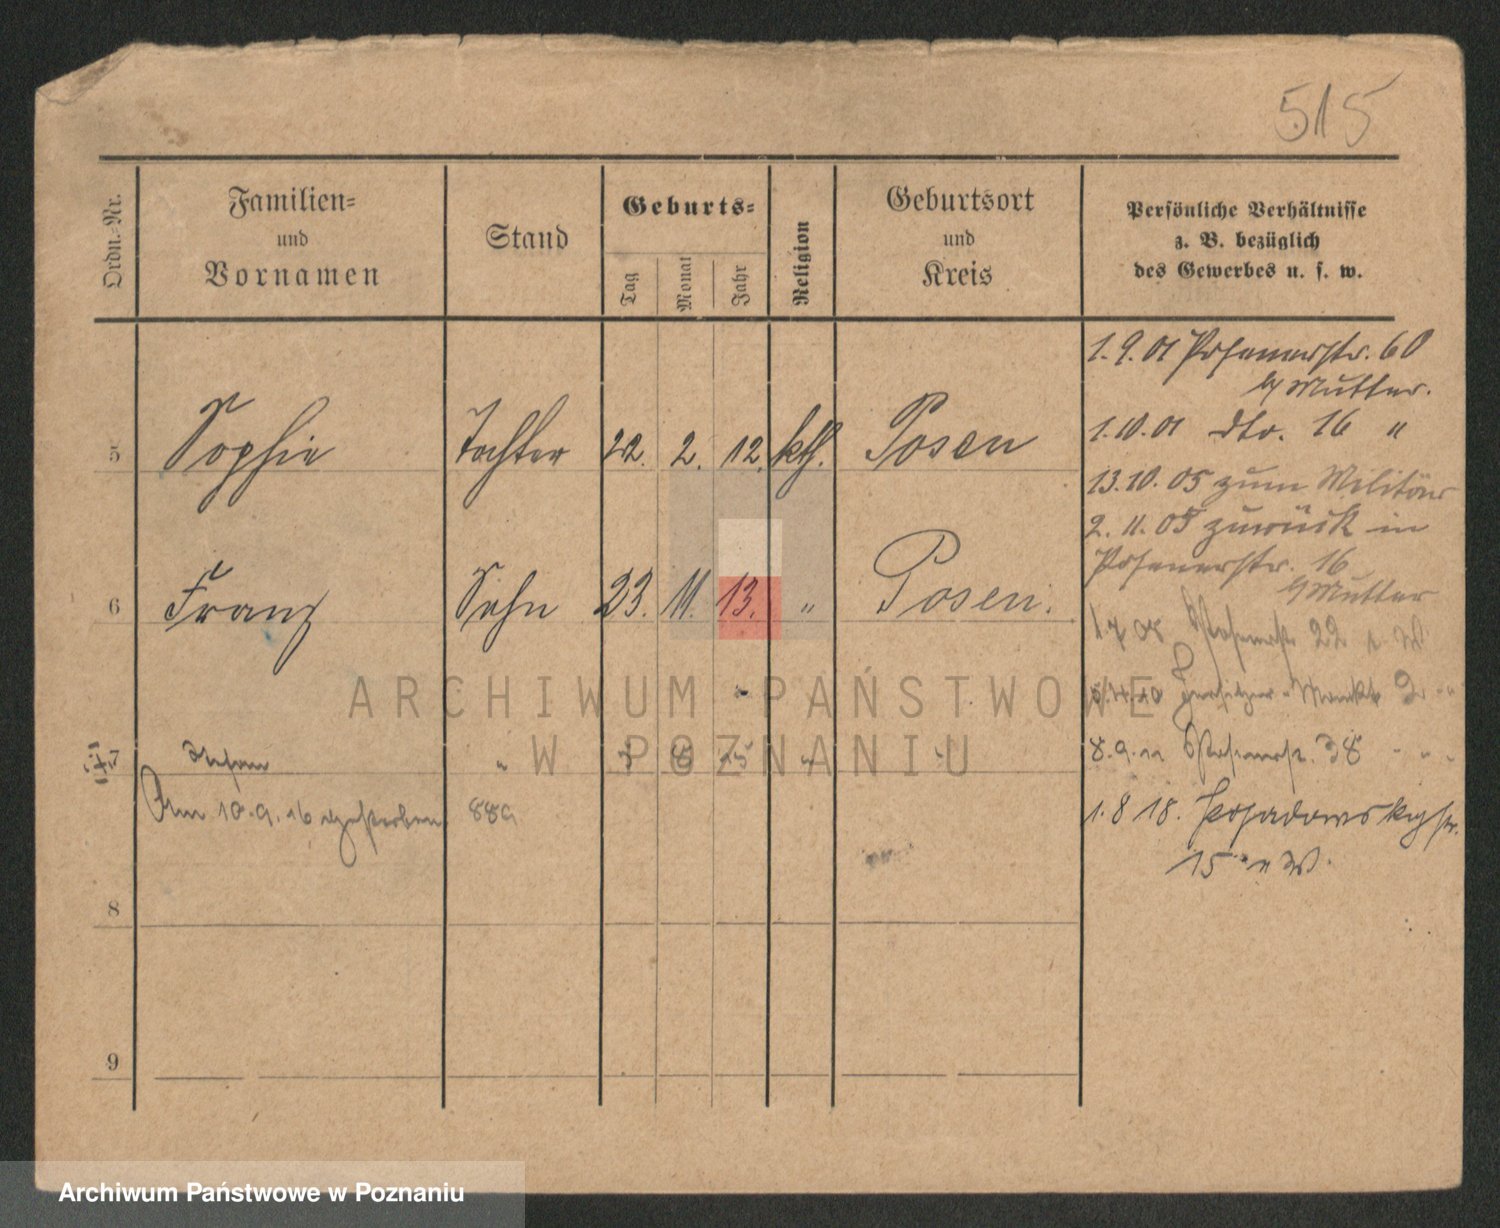 515
Ordn.-Nr.
Familien-
und
Vornamen
Stand
Geburts-
Tag
Monat
Jahr
Religion
Geburtsort
und
Kreis
Persönliche Verhältnisse
z. B. bezüglich
des Gewerbes u. s. w.
5 Sophie Tochter 22. 2. 12. kth. Posen
6 Franz Sohn 23. 11. 13. " Posen.
7 Stefan " 5 8 15 " "
Am 10.9.16 gestorben 889
8
9
1.9.01 Posenerstr. 60
b/ Mutter.
1.10.01 dto. 16 "
13.10.05 zum Militär
2.11.05 zurück in
Posenerstr. 16
b/ Mutter
1 7 08 Posenerstr 22 i. W.
Jersitzer Markt 2 " "
8.9.11 Posenerstr. 38 " " "
1.8 18. Posadowskystr.
15 i W.
ARCHIWUM PAŃSTWOWE
W POZNANIU
Archiwum Państwowe w Poznaniu